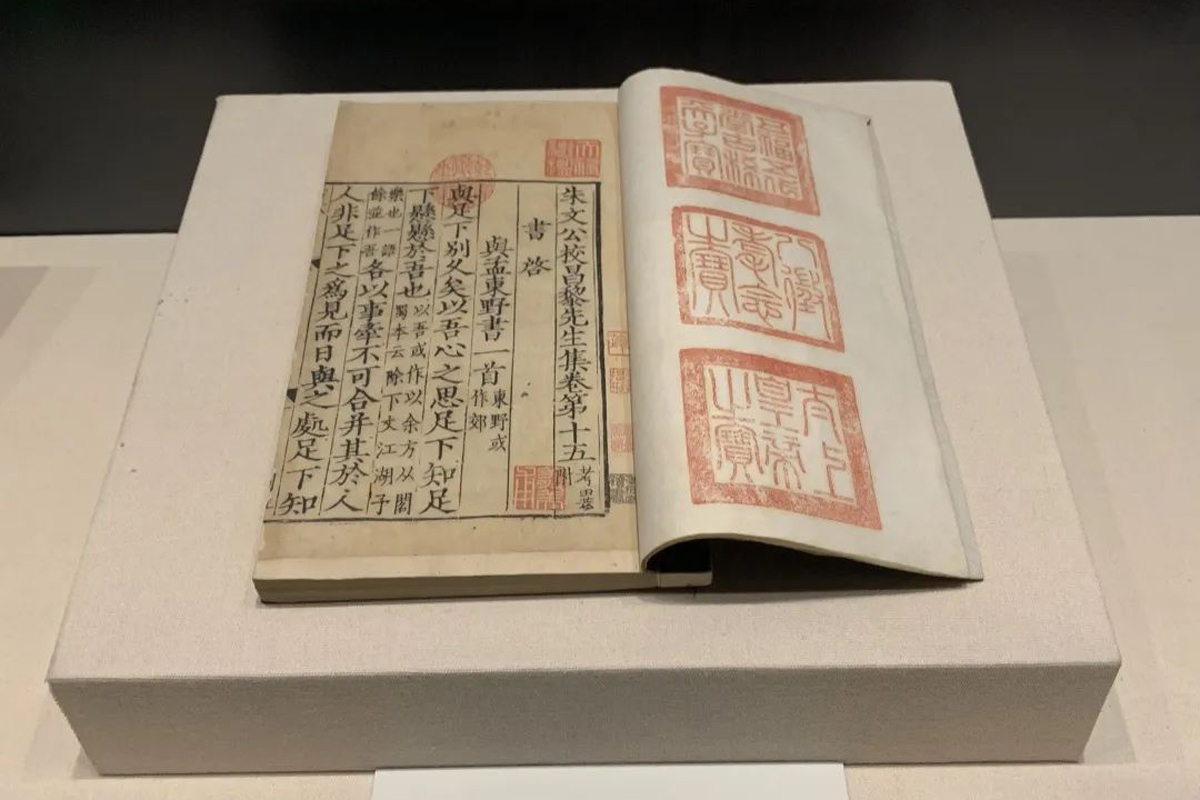 五福五代堂古稀天子寶
八徵耄念之寶
太上皇帝之寶
朱文公校昌黎先生集卷第十五考異附
書啓
與孟東野書一首東野或作郊
與足下別久矣以吾心之思足下知足
下懸懸於吾也以吾或作以余方从閣蜀本云除下丈江湖子
樂也一語餘並作吾各以事牽不可合并其於人
人非足下之爲見而日與之處足下知